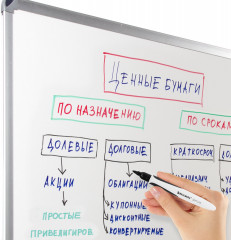 ЦЕННЫЕ БУМАГИ
ПО НАЗНАЧЕНИЮ
ПО СРОКАМ
ДОЛЕВЫЕ
ДОЛГОВЫЕ
КРАТКОСРОЧ
АКЦИИ
ОБЛИГАЦИИ
ПРОСТЫЕ
ПРИВЕЛИГИРОВ
КУПОННЫЕ
ДИСКОНТНЫЕ
КОНВЕРТИРУЕМ